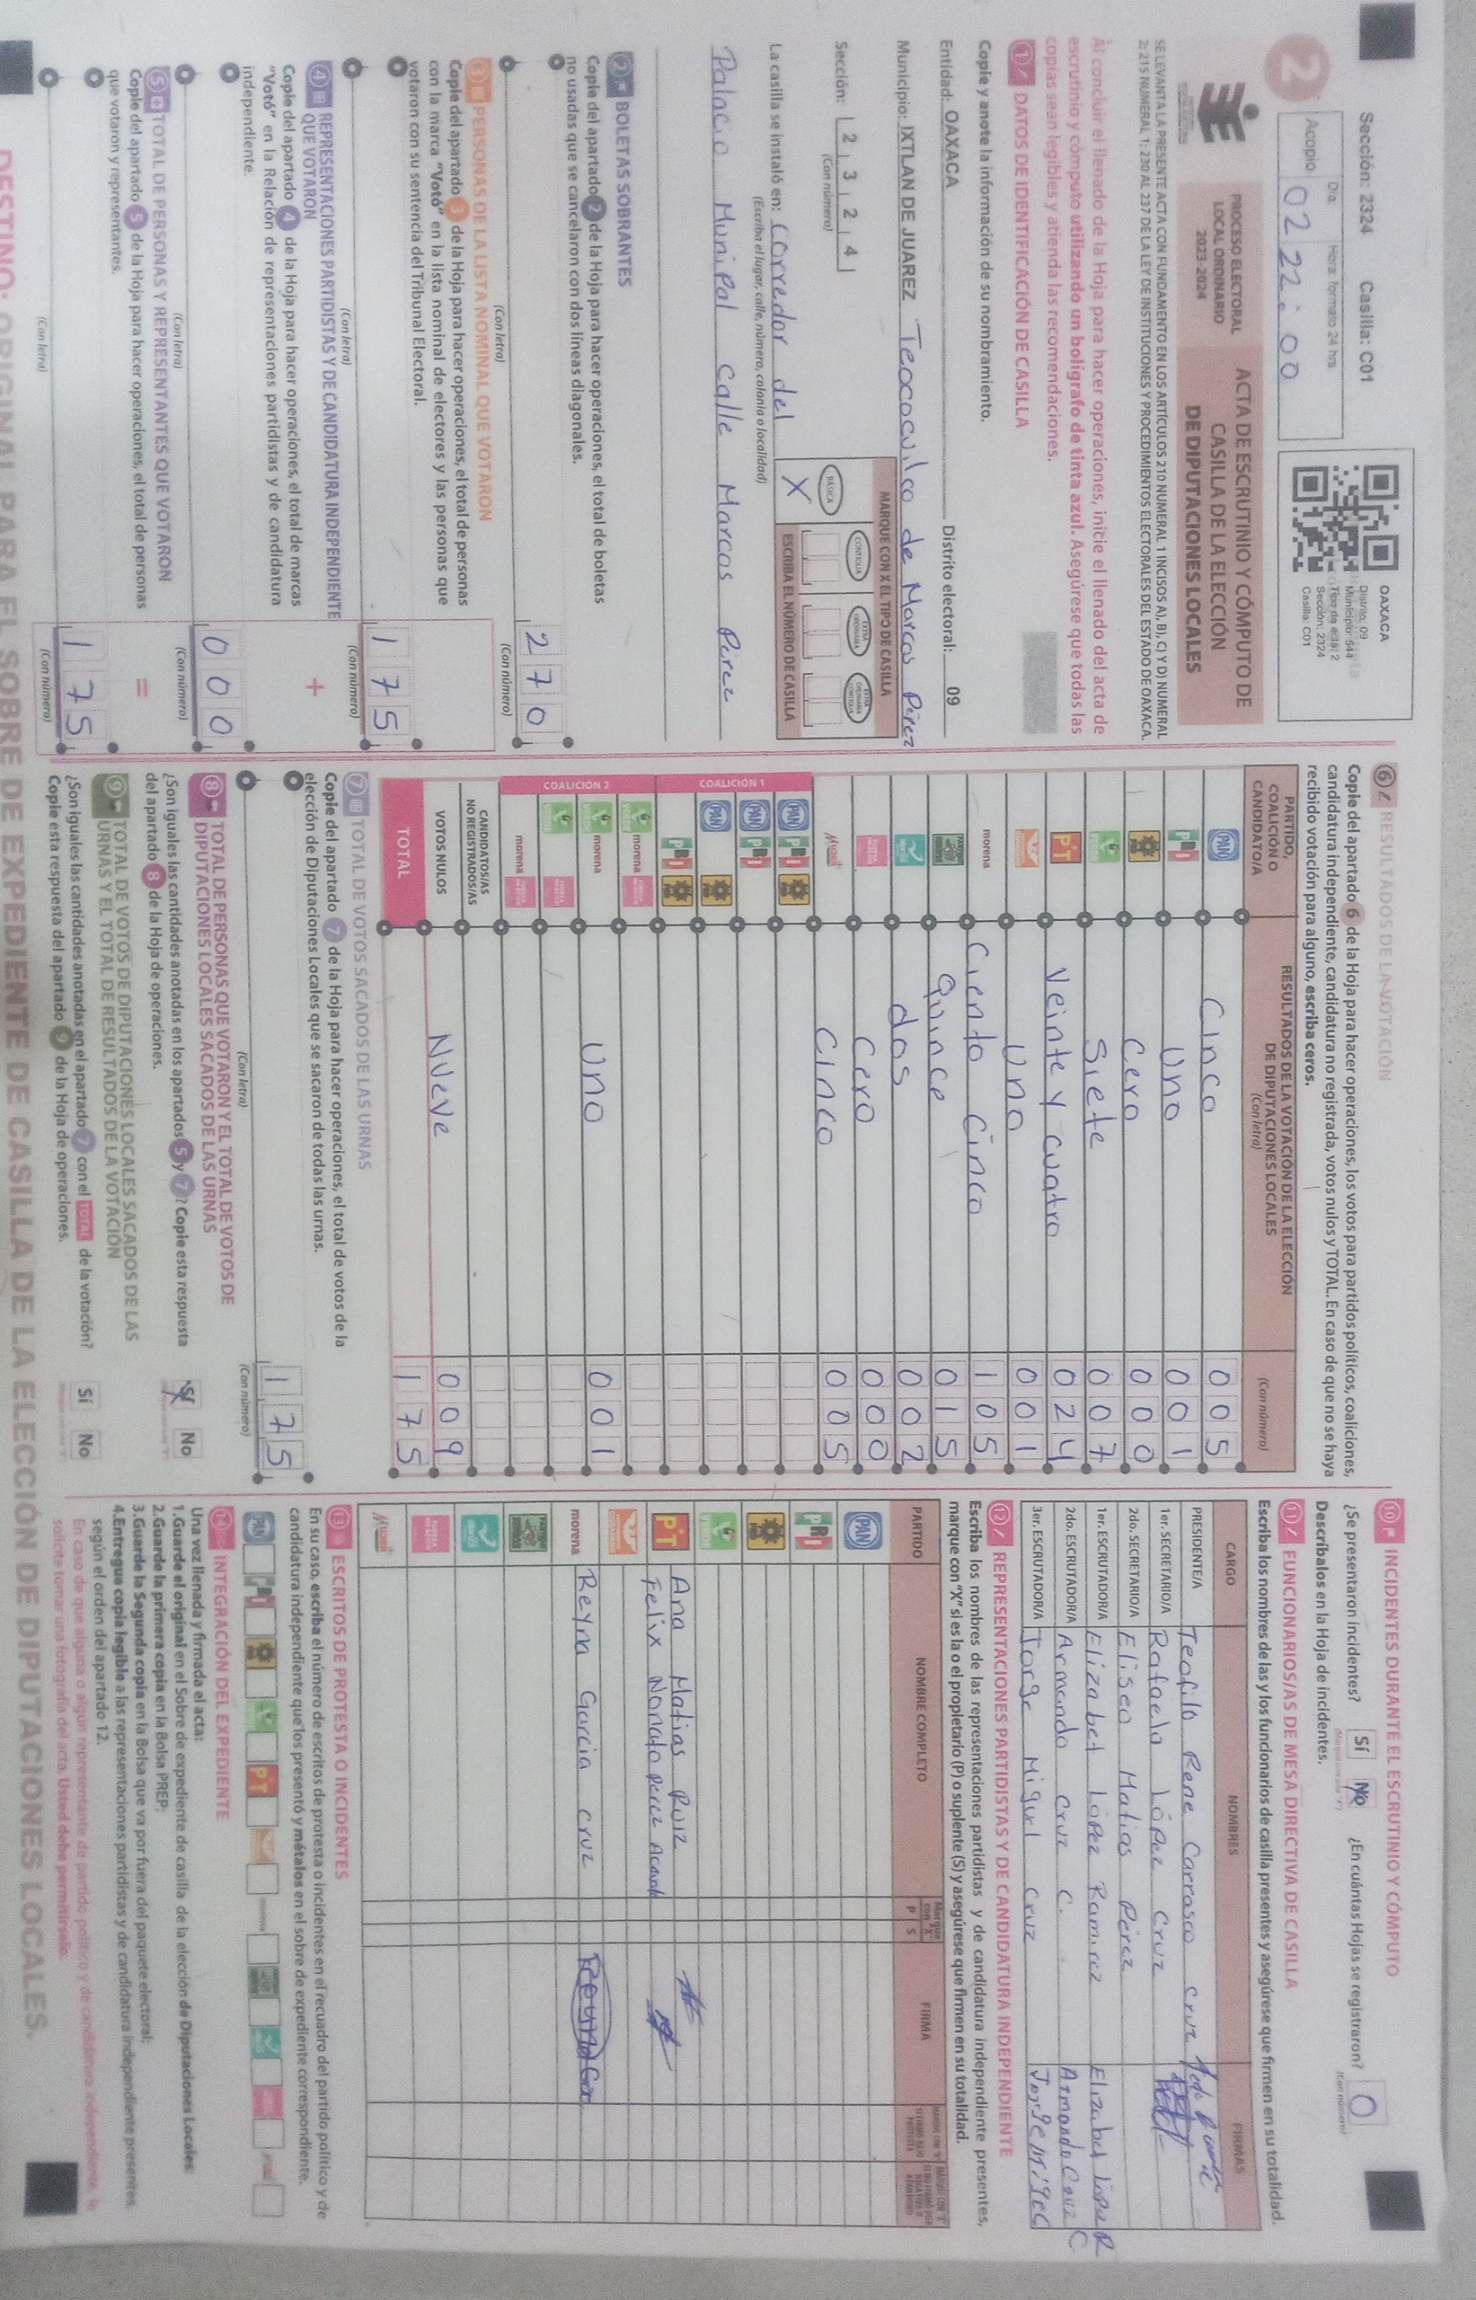 Sección: 2324 Casilla: C01
Día: Hora: formato 24 hrs
Acopio: 02 22:00
2
OAXACA
Distrito: 09
Municipio: 544
Tipo de acta: 2
Sección: 2324
Casilla: C01
PROCESO ELECTORAL
LOCAL ORDINARIO
2023-2024
ACTA DE ESCRUTINIO Y CÓMPUTO DE
CASILLA DE LA ELECCIÓN
DE DIPUTACIONES LOCALES
SE LEVANTA LA PRESENTE ACTA CON FUNDAMENTO EN LOS ARTÍCULOS 210 NUMERAL 1 INCISOS A), B), C) Y D) NUMERAL
2; 215 NUMERAL 1; 230 AL 237 DE LA LEY DE INSTITUCIONES Y PROCEDIMIENTOS ELECTORALES DEL ESTADO DE OAXACA.
Al concluir el llenado de la Hoja para hacer operaciones, inicie el llenado del acta de
escrutinio y cómputo utilizando un bolígrafo de tinta azul. Asegúrese que todas las
copias sean legibles y atienda las recomendaciones.
1 DATOS DE IDENTIFICACIÓN DE CASILLA
Copie y anote la información de su nombramiento.
Entidad: OAXACA Distrito electoral: 09
Municipio: IXTLAN DE JUAREZ Teococuilco de Marcos Pérez
Sección: 2 3 2 4
(Con número)
MARQUE CON X EL TIPO DE CASILLA
BÁSICA CONTIGUA EXTRAORDINARIA EXTRAORDINARIA CONTIGUA
X
ESCRIBA EL NÚMERO DE CASILLA
La casilla se instaló en: Corredor del
(Escriba el lugar, calle, número, colonia o localidad)
Palacio Munipal calle Marcos Pérez
2 BOLETAS SOBRANTES
Copie del apartado 2 de la Hoja para hacer operaciones, el total de boletas
no usadas que se cancelaron con dos líneas diagonales.
270
(Con letra) (Con número)
3 PERSONAS DE LA LISTA NOMINAL QUE VOTARON
Copie del apartado 3 de la Hoja para hacer operaciones, el total de personas
con la marca "Votó" en la lista nominal de electores y las personas que
votaron con su sentencia del Tribunal Electoral.
175
(Con letra) (Con número)
4 REPRESENTACIONES PARTIDISTAS Y DE CANDIDATURA INDEPENDIENTE
QUE VOTARON
+
Copie del apartado 4 de la Hoja para hacer operaciones, el total de marcas
"Votó" en la Relación de representaciones partidistas y de candidatura
independiente.
000
(Con letra) (Con número)
5 TOTAL DE PERSONAS Y REPRESENTANTES QUE VOTARON
=
Copie del apartado 5 de la Hoja para hacer operaciones, el total de personas
que votaron y representantes.
175
(Con letra) (Con número)
6 RESULTADOS DE LA VOTACIÓN
Copie del apartado 6 de la Hoja para hacer operaciones, los votos para partidos políticos, coaliciones,
candidatura independiente, candidatura no registrada, votos nulos y TOTAL. En caso de que no se haya
recibido votación para alguno, escriba ceros.
PARTIDO,
COALICIÓN O
CANDIDATO/A
RESULTADOS DE LA VOTACIÓN DE LA ELECCIÓN
DE DIPUTACIONES LOCALES
(Con letra) (Con número)
PAN Cinco 005
PRI Uno 001
Cero 000
VERDE Siete 007
PT Veinte y cuatro 024
Uno 001
morena Ciento cinco 105
quince 015
dos 002
cero 000
Mujer cinco 005
COALICIÓN 1
PAN PRI
PAN PRI
PAN
PRI
COALICIÓN 2
VERDE morena
VERDE morena uno 001
VERDE
morena
CANDIDATOS/AS
NO REGISTRADOS/AS
VOTOS NULOS Nueve 009
TOTAL 175
7 TOTAL DE VOTOS SACADOS DE LAS URNAS
Copie del apartado 7 de la Hoja para hacer operaciones, el total de votos de la
elección de Diputaciones Locales que se sacaron de todas las urnas.
175
(Con letra) (Con número)
8 TOTAL DE PERSONAS QUE VOTARON Y EL TOTAL DE VOTOS DE
DIPUTACIONES LOCALES SACADOS DE LAS URNAS
¿Son iguales las cantidades anotadas en los apartados 5 y 7? Copie esta respuesta
del apartado 8 de la Hoja de operaciones.
Sí No
9 TOTAL DE VOTOS DE DIPUTACIONES LOCALES SACADOS DE LAS
URNAS Y EL TOTAL DE RESULTADOS DE LA VOTACIÓN
¿Son iguales las cantidades anotadas en el apartado 7 con el TOTAL de la votación?
Copie esta respuesta del apartado 9 de la Hoja de operaciones.
Sí No
10 INCIDENTES DURANTE EL ESCRUTINIO Y CÓMPUTO
¿Se presentaron incidentes? Sí No ¿En cuántas Hojas se registraron? 0
(Con número)
Descríbalos en la Hoja de incidentes.
11 FUNCIONARIOS/AS DE MESA DIRECTIVA DE CASILLA
Escriba los nombres de las y los funcionarios de casilla presentes y asegúrese que firmen en su totalidad.
CARGO NOMBRES FIRMAS
PRESIDENTE/A Teofilo Rene Carrasco cruz
1er. SECRETARIO/A Rafaela López Cruz
2do. SECRETARIO/A Eliseo Matias Pérez
1er. ESCRUTADOR/A Elizabet López Ramirez Elizabet López R
2do. ESCRUTADOR/A Armando cruz C. Armando Cruz C
3er. ESCRUTADOR/A Jorge Miguel cruz Jorge miguel
12 REPRESENTACIONES PARTIDISTAS Y DE CANDIDATURA INDEPENDIENTE
Escriba los nombres de las representaciones partidistas y de candidatura independiente presentes,
marque con "X" si es la o el propietario (P) o suplente (S) y asegúrese que firmen en su totalidad.
PARTIDO NOMBRE COMPLETO P S FIRMA
PAN
PRI
VERDE
PT Ana Matias Ruiz
Felix Nonato perez
morena Reyna Garcia cruz
Mujer
13 ESCRITOS DE PROTESTA O INCIDENTES
En su caso, escriba el número de escritos de protesta o incidentes en el recuadro del partido político y de
candidatura independiente que los presentó y métalos en el sobre de expediente correspondiente.
PAN PRI PT
14 INTEGRACIÓN DEL EXPEDIENTE
Una vez llenada y firmada el acta:
1.Guarde el original en el Sobre de expediente de casilla de la elección de Diputaciones Locales;
2.Guarde la primera copia en la Bolsa PREP;
3.Guarde la Segunda copia en la Bolsa que va por fuera del paquete electoral;
4.Entregue copia legible a las representaciones partidistas y de candidatura independiente presentes,
según el orden del apartado 12.
En caso de que alguna o algún representante de partido político y de candidatura independiente, le
solicite tomar una fotografía del acta. Usted debe permitírselo.
DESTINO: ORIGINAL PARA EL SOBRE DE EXPEDIENTE DE CASILLA DE LA ELECCIÓN DE DIPUTACIONES LOCALES.